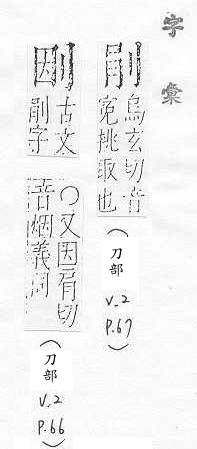 字彙
剈
烏玄切音
寃挑取也
(刀部
V.2
P.67)
古文
剈字
○又因肩切
音烟義同
(刀部
V.2
P.66)